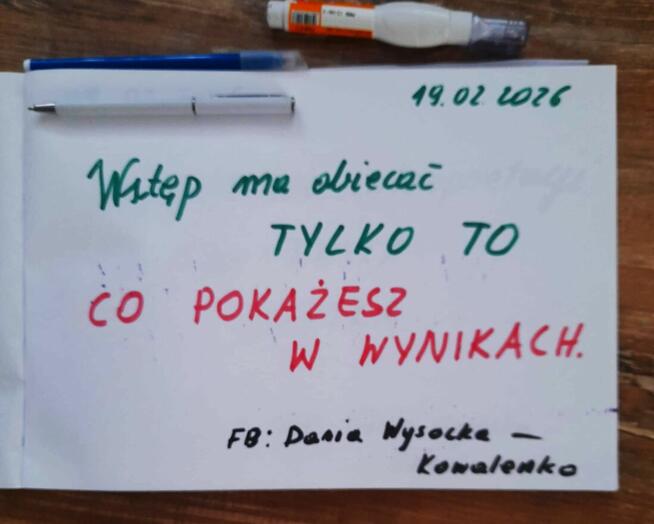 19.02.2026
Wstęp ma obiecać
TYLKO TO
CO POKAŻESZ
W WYNIKACH.
FB: Daria Wysocka –
Kowalenko